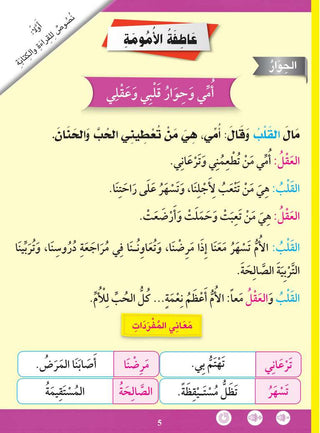 أَوَّلاً:
نُصُوصٌ لِلْقِرَاءَةِ وَالْكِتَابَةِ
عَاطِفَةُ الْأُمُومَةِ
الحِوَارُ
أُمِّي وَحِوَارُ قَلْبِي وَعَقْلِي
مَالَ القَلْبُ وَقَالَ: أُمِّي، هِيَ مَنْ تُعْطِينِي الحُبَّ وَالحَنَانَ.
العَقْلُ: أُمِّي مَنْ تُطْعِمُنِي وَتَرْعَانِي.
القَلْبُ: هِيَ مَنْ تَتْعَبُ لِأَجْلِنَا، وَتَسْهَرُ عَلَى رَاحَتِنَا.
العَقْلُ: هِيَ مَنْ تَعِبَتْ وَحَمَلَتْ وَأَرْضَعَتْ.
القَلْبُ: الأُمُّ تَسْهَرُ مَعَنَا إِذَا مَرِضْنَا، وَتُعَاوِنُنَا فِي مُرَاجَعَةِ دُرُوسِنَا، وَتُرَبِّينَا
التَّرْبِيَةَ الصَّالِحَةَ.
القَلْبُ وَالعَقْلُ مَعاً: الأُمُّ أَعْظَمُ نِعْمَةٍ... كُلُّ الحُبِّ لِلْأُمِّ.
مَعَانِي المُفْرَدَاتِ
تَرْعَانِي تَهْتَمُّ بِي. مَرِضْنَا أَصَابَنَا المَرَضُ.
تَسْهَرُ تَظَلُّ مُسْتَيْقِظَةً. الصَّالِحَةُ المُسْتَقِيمَةُ
5